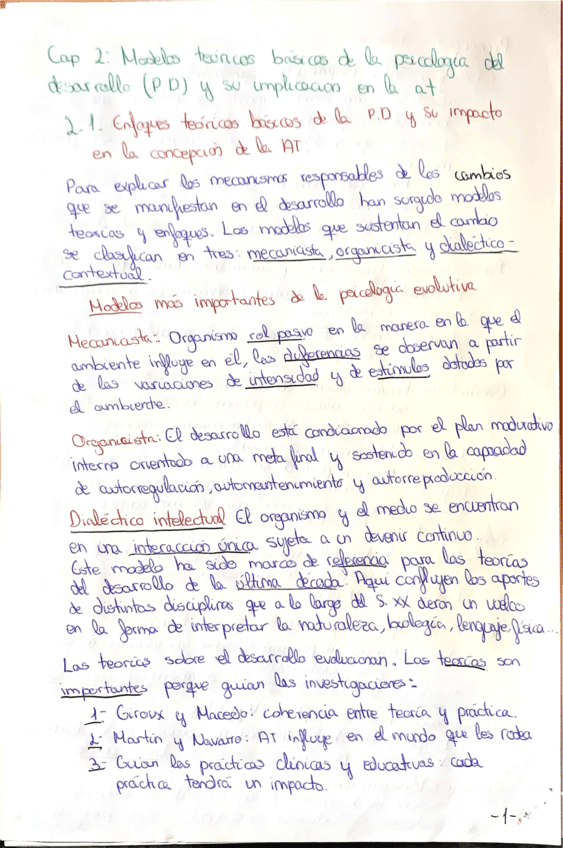 Cap 2: Modelos teóricos básicos de la psicología del
desarrollo (PD) y su implicacion en la at
2.1. Enfoques teóricos básicos de la P.D y su impacto
en la concepción de la AT.
Para explicar los mecanismos responsables de los cambios
que se manifiestan en el desarrollo han surgido modelos
teorias y enfoques. Los modelos que sustentan el cambio
se clasifican en tres: mecanicista, organicista y dialéctico-
contextual.
Modelos más importantes de la psicología evolutiva
Mecanicista: Organismo rol pasivo en la manera en la que el
ambiente influye en él, las diferencias se observan a partir
de las variaciones de intensidad y de estímulos dotados por
el ambiente.
Organicista: El desarrollo está condicionado por el plan madurativo
interno orientado a una meta final y sostenido en la capacidad
de autorregulación, automantenimiento y autorreproducción.
Dialéctico intelectual El organismo y el medio se encuentran
en una interacción única sujeta a un devenir continuo.
Este modelo ha sido marco de referencia para las teorías
del desarrollo de la última decada. Aquí confluyen los aportes
de distintas disciplinas que a lo largo del S. XX dieron un vuelco
en la forma de interpretar la naturaleza, biología, lenguaje, física...
Las teorías sobre el desarrollo evolucionan. Las teorías son
importantes porque guian las investigaciones:
1- Giroux y Macedo: coherencia entre teoría y práctica.
2- Martín y Navarro: AT influye en el mundo que les rodea
3- Guian las prácticas clínicas y educativas: cada
práctica tendrá un impacto.
-1-